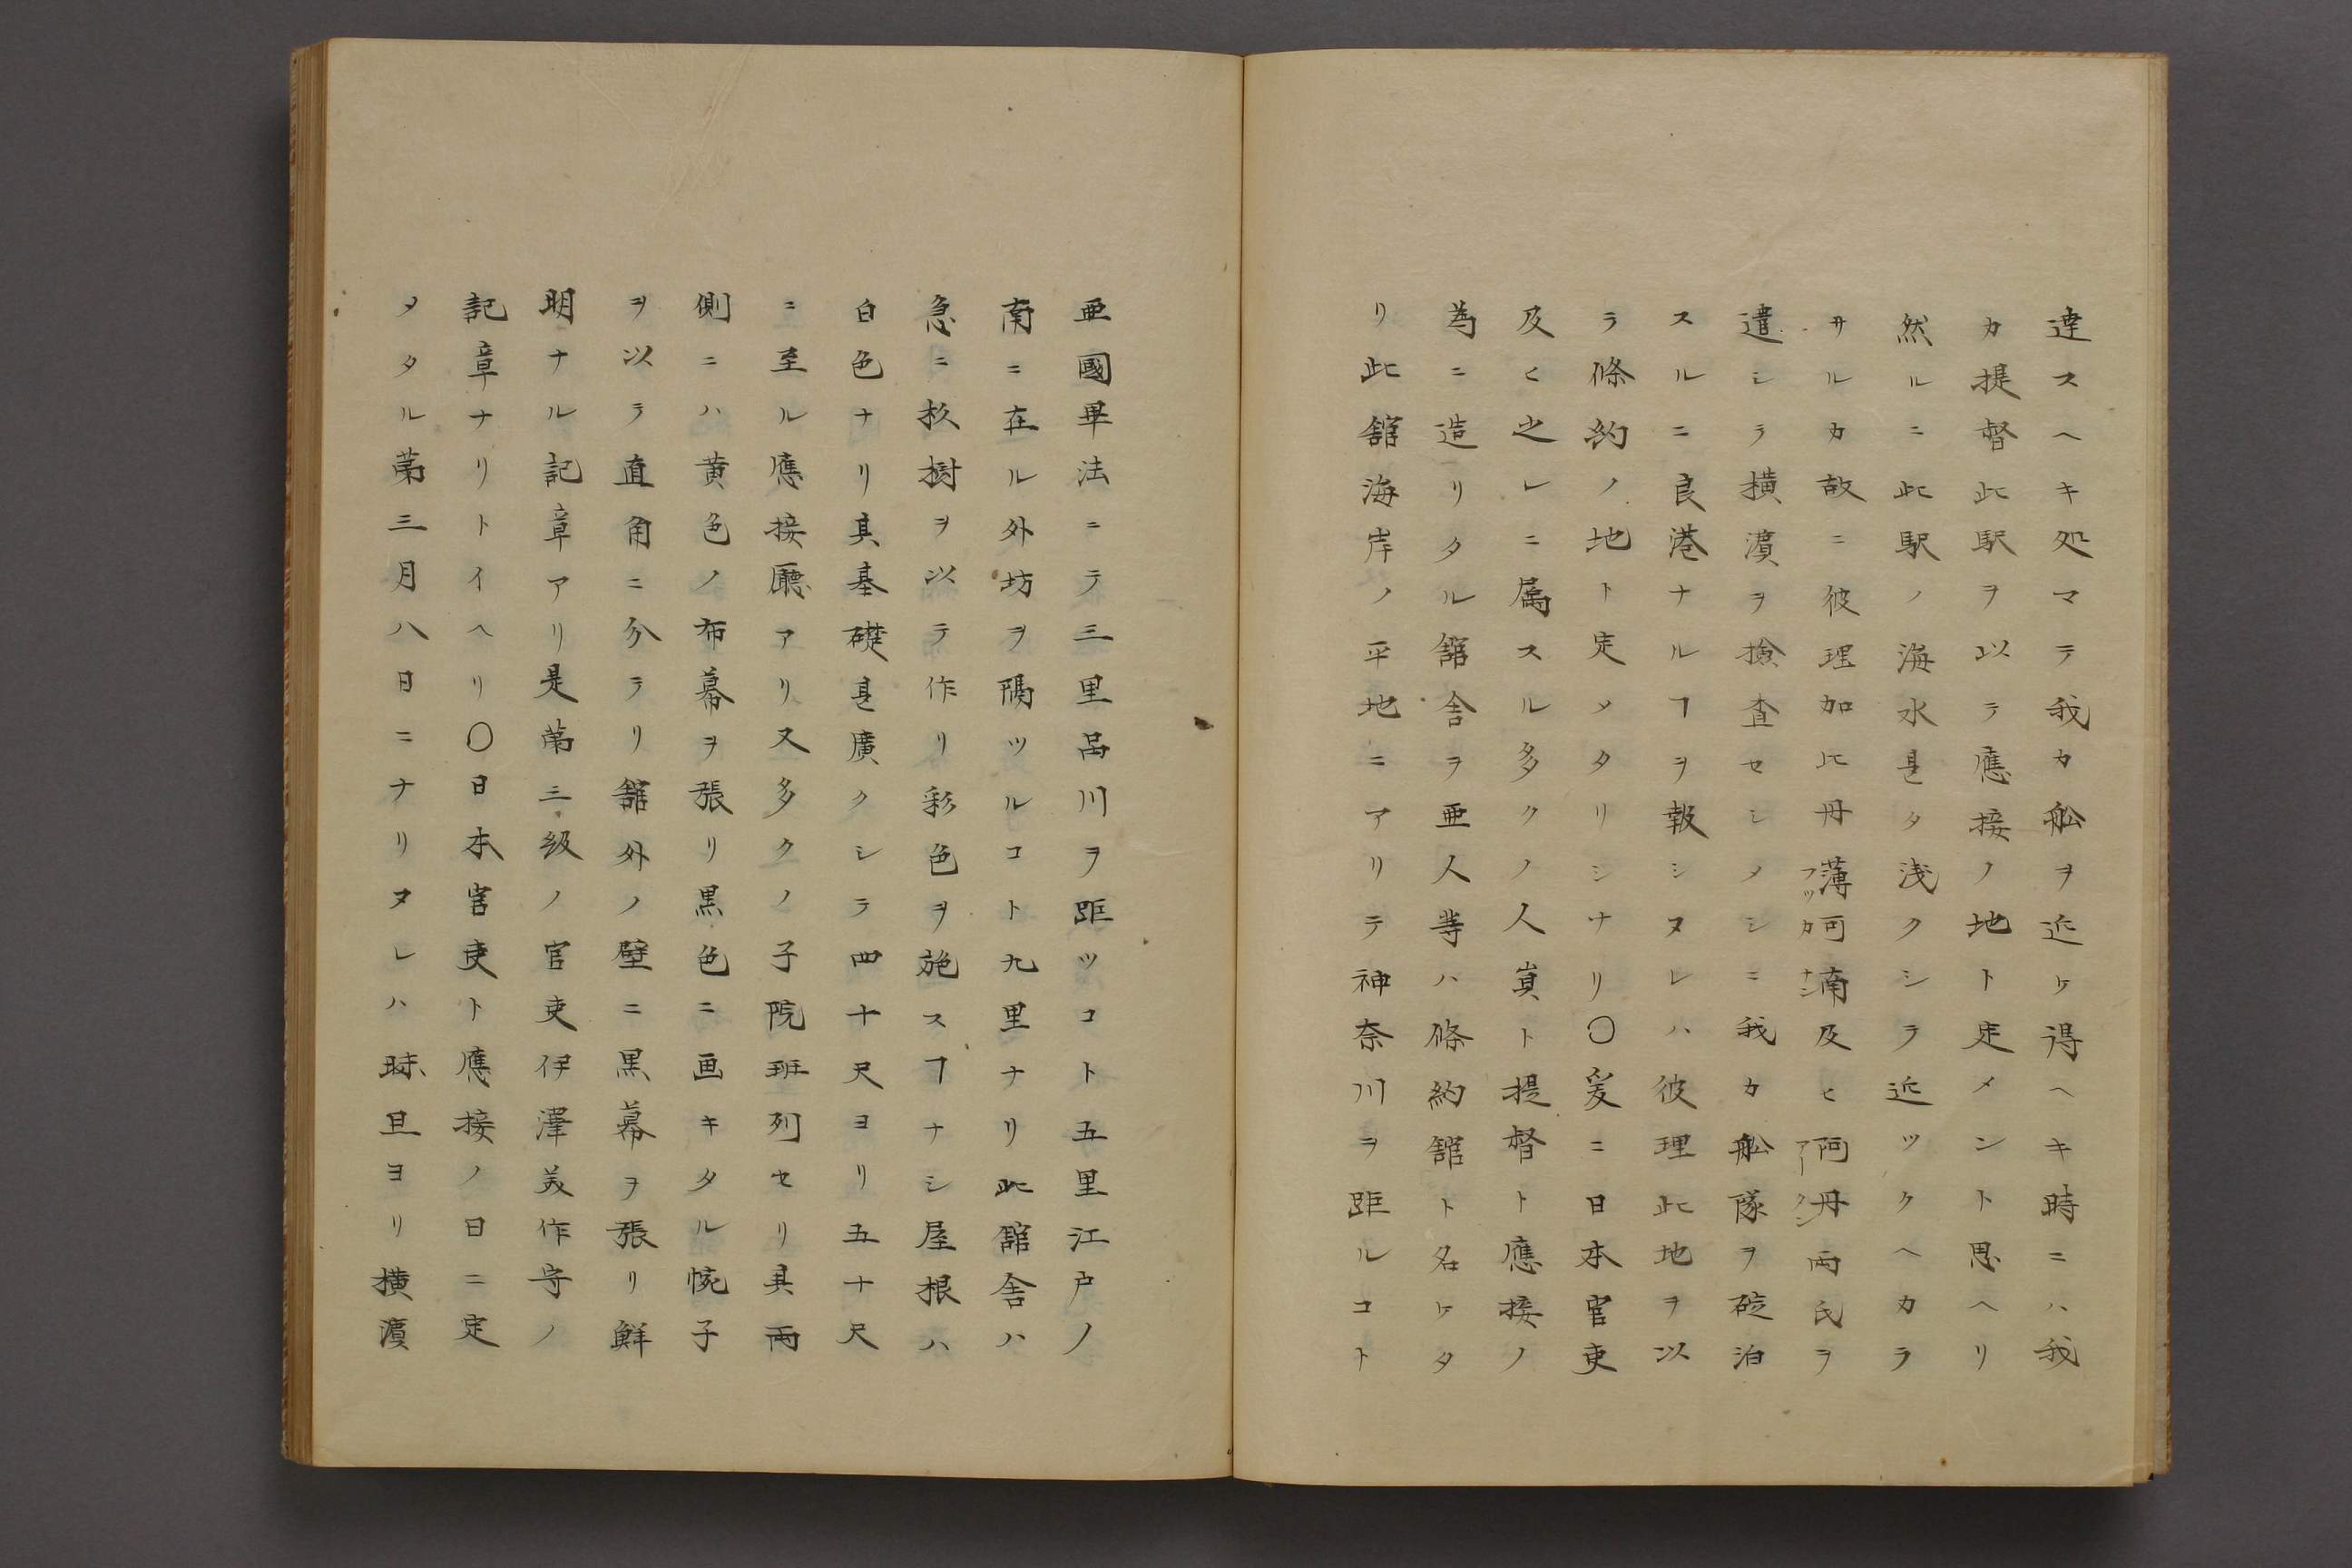 達スヘキ処マテ我カ舩ヲ近ケ得ヘキ時ニハ我
カ提督此駅ヲ以テ應接ノ地ト定メント思ヘリ
然ルニ此駅ノ海水甚タ浅クシテ近ツクヘカラ
サルカ故ニ彼理加比丹薄呵南及ヒ阿丹両氏ヲ
フッカナン
アークン
遣シテ横濱ヲ撿査セシメシニ我カ舩隊ヲ碇泊
スルニ良港ナルヿヲ報シヌレハ彼理此地ヲ以
テ條約ノ地ト定メタリシナリ〇爰ニ日本官吏
及ヒ之レニ属スル多クノ人員ト提督ト應接ノ
為ニ造リタル舘舎ヲ亜人等ハ條約舘ト名ケタ
リ此舘海岸ノ平地ニアリテ神奈川ヲ距ルコト
亜國里法ニテ三里品川ヲ距ツコト五里江戸ノ
南ニ在ル外坊ヲ隔ツルコト九里ナリ此舘舎ハ
急ニ杉樹ヲ以テ作リ彩色ヲ施スヿナシ屋根ハ
白色ナリ其基礎甚廣クシテ四十尺ヨリ五十尺
ニ至ル應接廳アリ又多クノ子院班列セリ其両
側ニハ黄色ノ布幕ヲ張リ黒色ニ画キタル惋子
ヲ以テ直角ニ分テリ舘外ノ壁ニ黒幕ヲ張リ鮮
明ナル記章アリ是第三級ノ官吏伊澤美作守ノ
記章ナリトイヘリ〇日本官吏ト應接ノ日ニ定
メタル第三月八日ニナリヌレハ昧旦ヨリ横濱